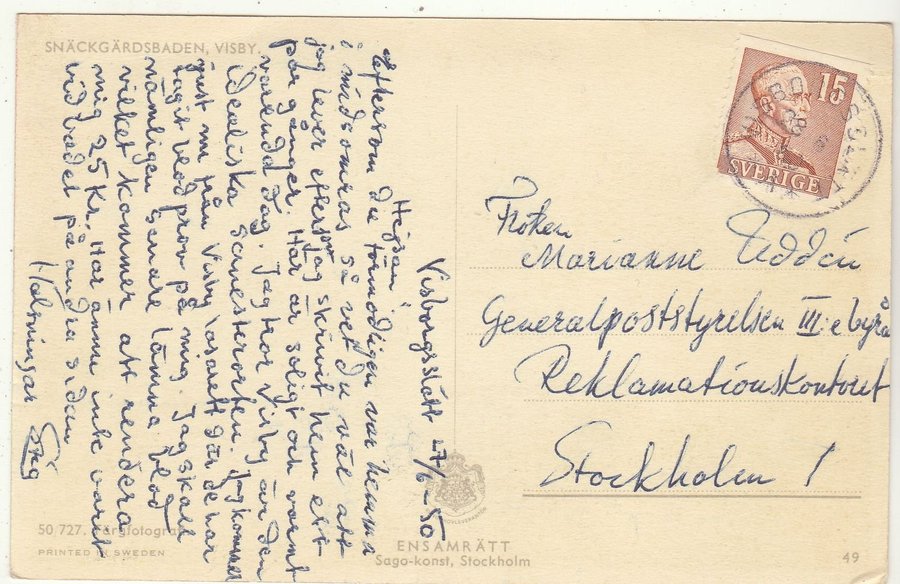 SNÄCKGÄRDSBADEN, VISBY.
Visborgsslätt 27/6-50
Hejsan!
Eftersom du förmodligen var hemma
i midsomras så vet du väl att
jag lever eftersom jag skrivit hem ett
par gånger. Här är soligt och varmt
varenda dag. Jag tror Visby är den
idealiska semesterorten. Jag kommer
just nu från Visby lasarett där de har
tagit blodprov på mig. Jag skall
nämligen senare lämna blod
vilket kommer att rendera
mig 25 Kr. Har ännu inte varit
vid badet på andra sidan
Hälsningar
Stig
15
SVERIGE
Fröken
Marianne Uddén
Generalpoststyrelsen III:e byrå
Reklamationskontoret
Stockholm 1
50 727. Färgfotografi
PRINTED IN SWEDEN
ENSAMRÄTT
Sago-konst, Stockholm
49